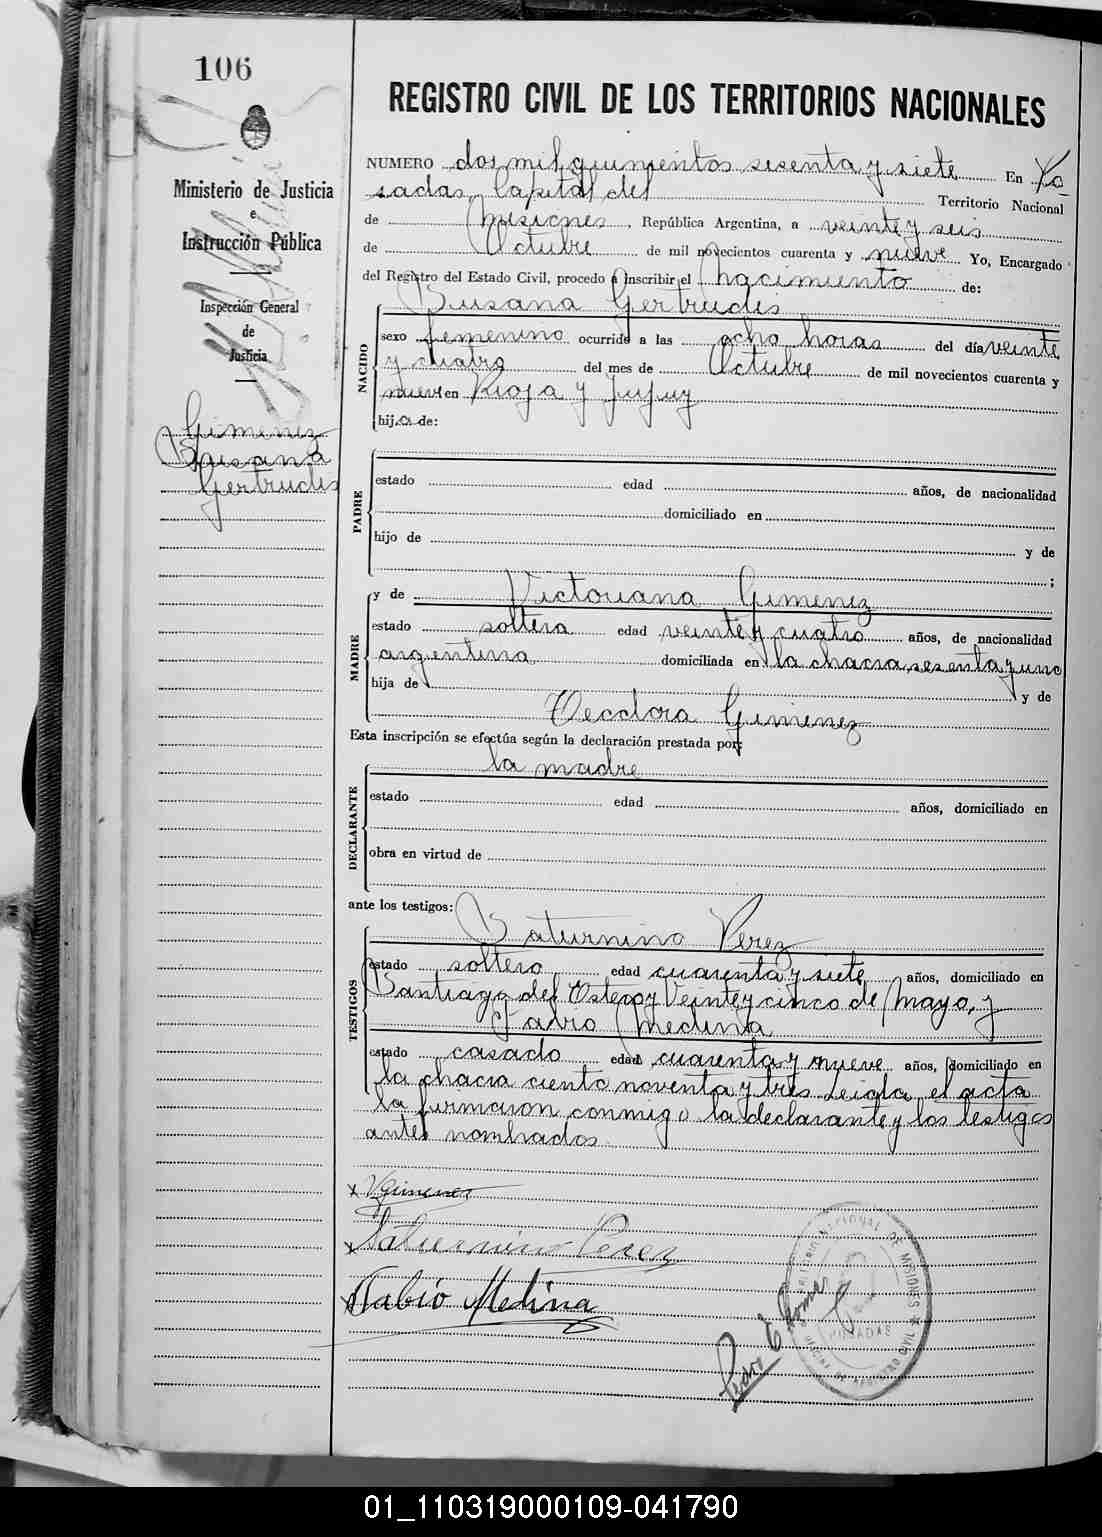 106
Ministerio de Justicia
e
Instrucción Pública
Inspección General
de
Justicia
Gimenez
Susana
Gertrudis
REGISTRO CIVIL DE LOS TERRITORIOS NACIONALES
NUMERO dos mil quinientos sesenta y siete En Po-
sadas, Capital del Territorio Nacional
de Misiones, República Argentina, a veinte y seis
de Octubre de mil novecientos cuarenta y nueve Yo, Encargado
del Registro del Estado Civil, procedo a inscribir el nacimiento de:
Susana Gertrudis
NACIDO
sexo femenino ocurrido a las ocho horas del día veinte
y cuatro del mes de Octubre de mil novecientos cuarenta y
nueve en Rioja y Jujuy
hija de:
PADRE
estado edad años, de nacionalidad
domiciliado en
hijo de y de
;
MADRE
y de Victoriana Gimenez
estado soltera edad veinte y cuatro años, de nacionalidad
argentina domiciliada en la chacra sesenta y uno
hija de y de
Teodora Gimenez
Esta inscripción se efectúa según la declaración prestada por:
la madre
DECLARANTE
estado edad años, domiciliado en
obra en virtud de
ante los testigos:
Saturnino Perez
TESTIGOS
estado soltero edad cuarenta y siete años, domiciliado en
Santiago del Estero y Veinte y cinco de Mayo, y
Fabio Medina
estado casado edad cuarenta y nueve años, domiciliado en
la chacra ciento noventa y tres. Leida el acta
la firmaron conmigo la declarante y los testigos
antes nombrados.
x VGimenez
x Saturnino Perez
x Fabio Medina
Pedro E
DE MISIONES
POSADAS
OFICINA DE REGISTRO CIVIL
01_110319000109-041790